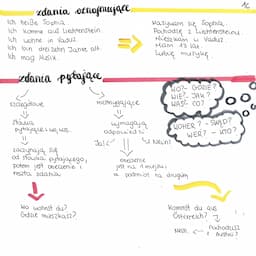 zdania oznajmujące
1c
Ich heiße Sophia.
Ich komme aus Liechtenstein
Ich wohne in Vaduz
Ich bin dreizehn Jahre alt.
Ich mag Musik.
Nazywam się Sophia.
Pochodzę z Liechtensteinu.
Mieszkam w Vaduz
Mam 13 lat.
Lubię muzykę.
zdania pytające
szczegółowe
słowa
pytające: wo, wie..
zaczynają się
od słowa pytającego,
potem jest orzeczenie i
reszta zdania
Wo wohnst du?
Gdzie mieszkasz?
rozstrzygające
wymagają
odpowiedzi
Ja!
Nein!
orzeczenie
jest na 1 miejscu
a podmiot na drugim
WO? - GDZIE?
WIE? - JAK?
WAS? - CO?
WOHER? - SKĄD?
WER? - KTO?
Kommst du aus
Österreich?
Nein.
Pochodzisz
z Austrii?